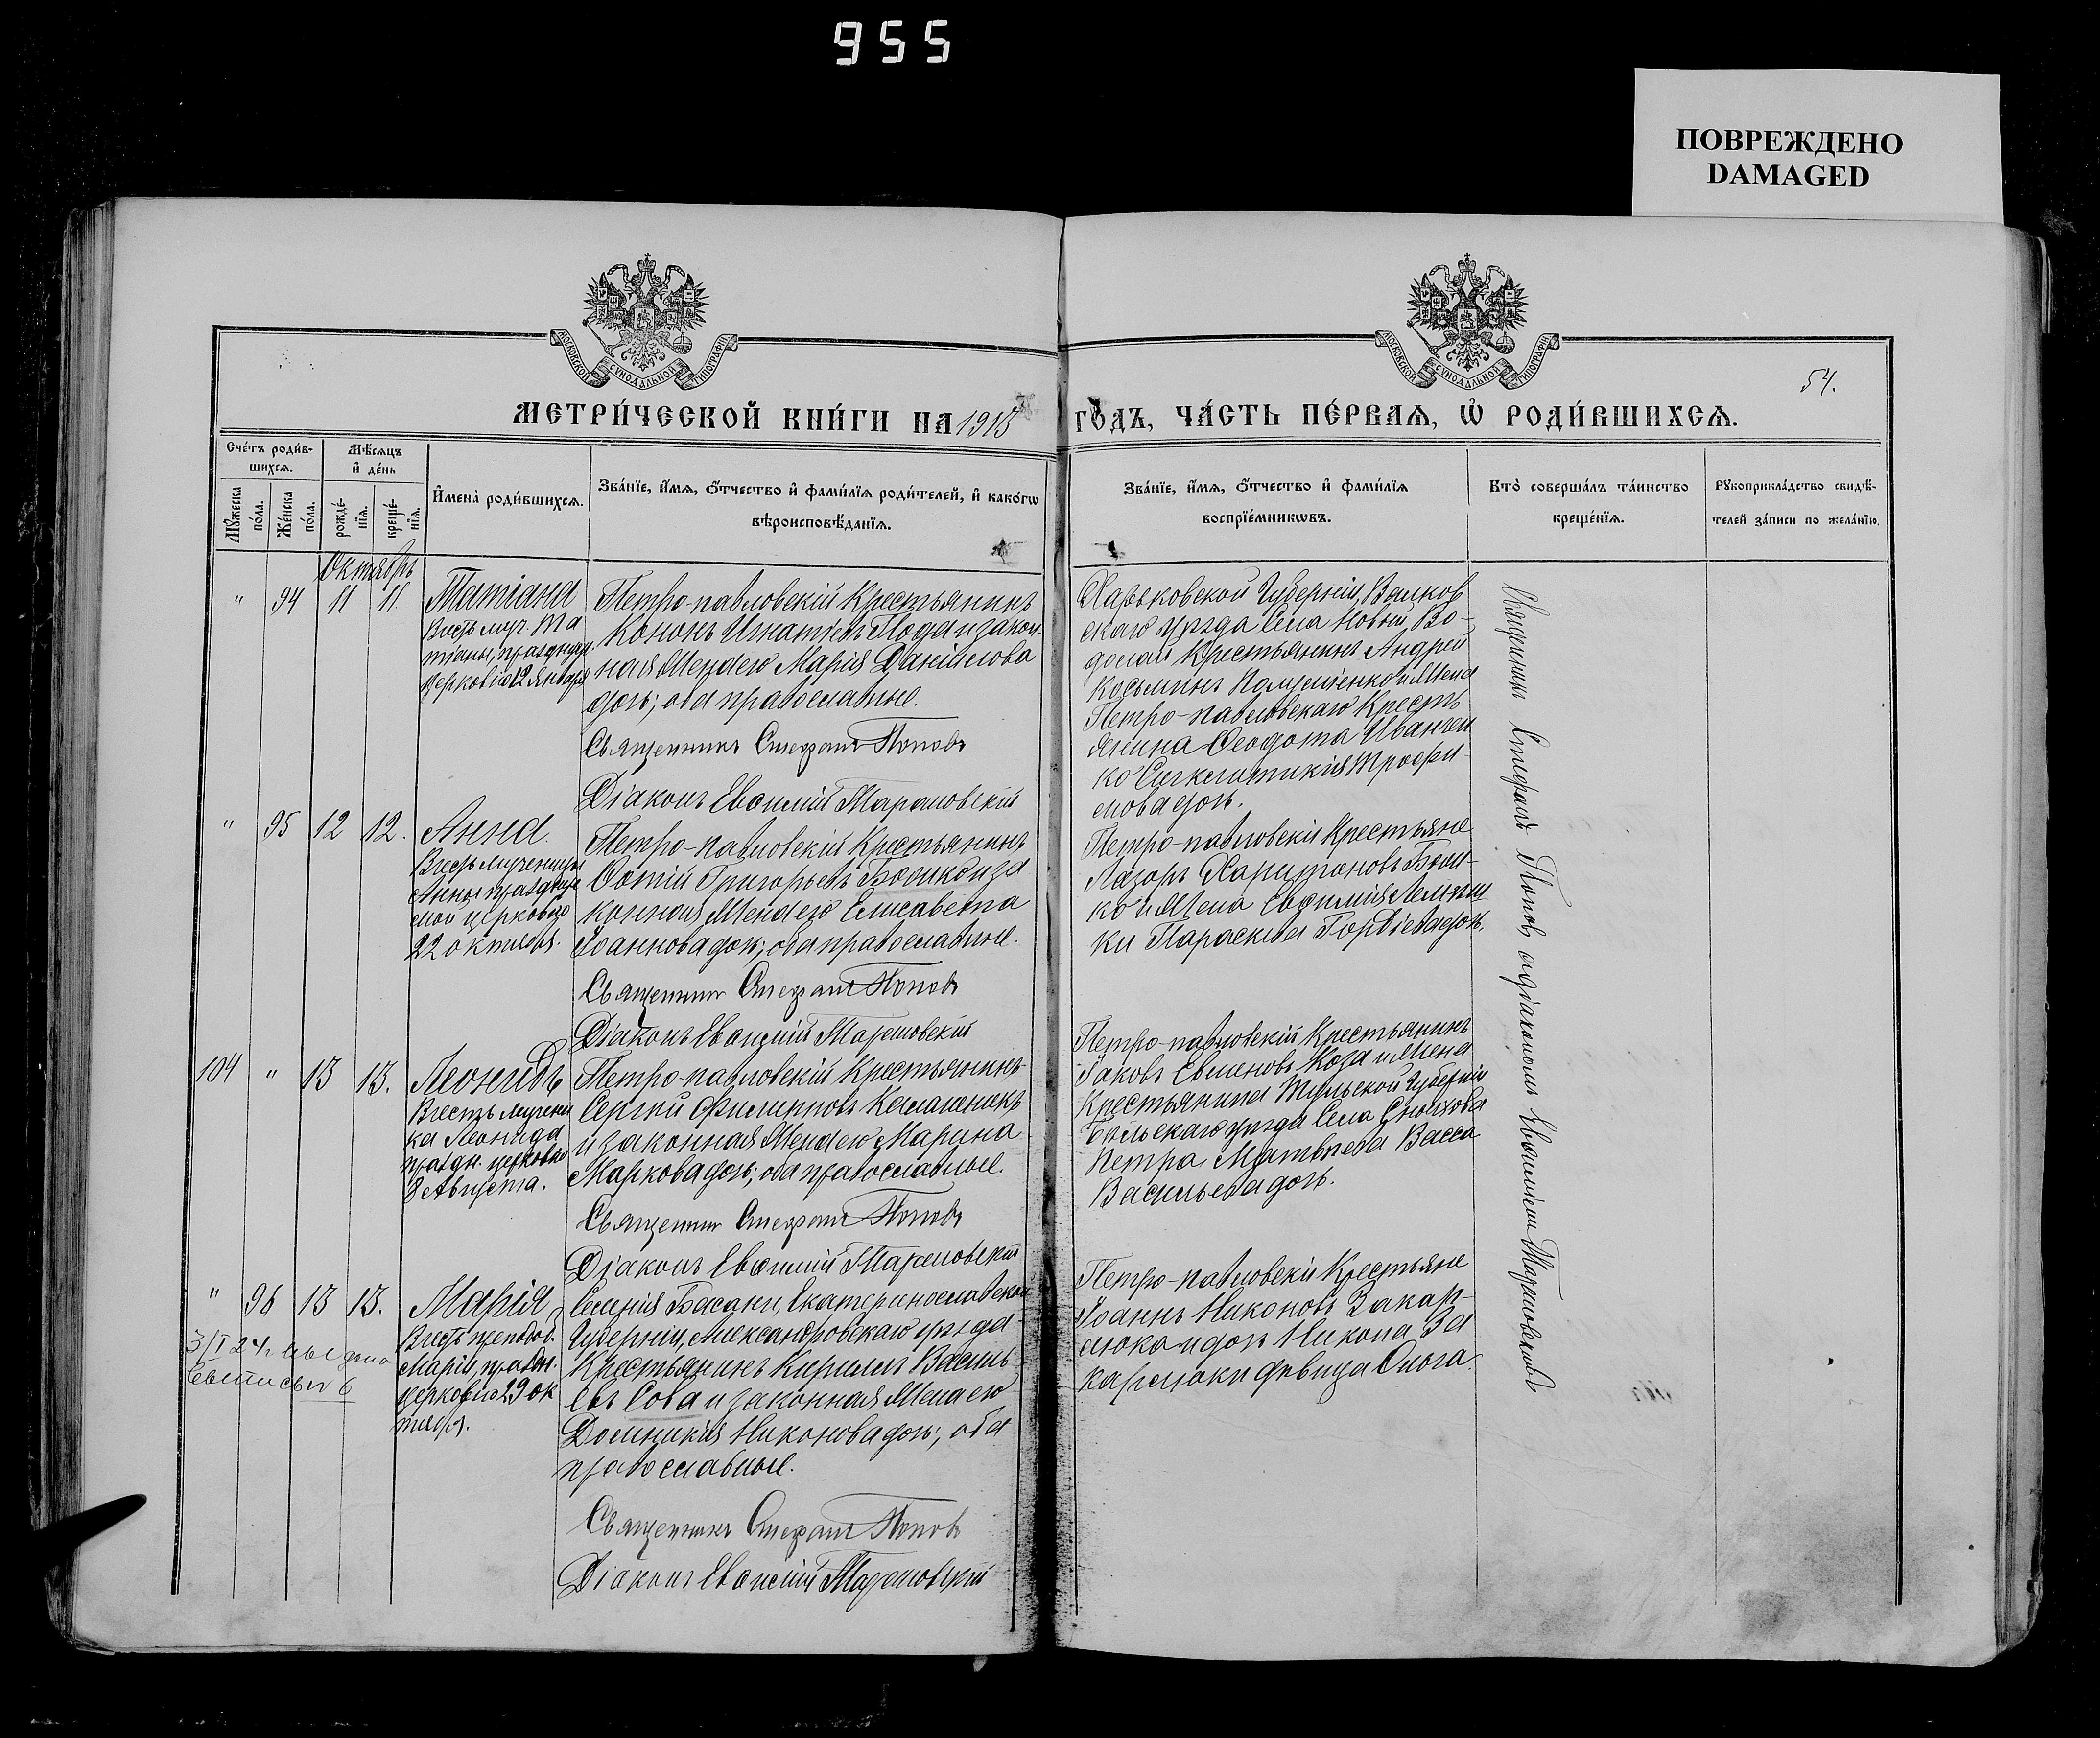 955
ПОВРЕЖДЕНО
DAMAGED
МОСКОВСКОЙ СѴНОДАЛЬНОЙ ТИПОГРАФІИ
МОСКОВСКОЙ СѴНОДАЛЬНОЙ ТИПОГРАФІИ
54.
МЕТРИ́ЧЕСКОЙ КНИ́ГИ НА 1913 ГО́ДЪ, ЧА́СТЬ ПЕ́РВАѦ, Ѡ҆ РОДИ́ВШИХСѦ.
Сче́тъ роди́в-
шихсѧ.
Мѣ́сѧцъ
и҆ де́нь
Мꙋ́жеска
по́ла.
Же́нска
по́ла.
рожде́-
нїѧ.
креще́-
нїѧ.
И҆мена̀ роди́вшихсѧ.
Зва́нїе, и҆́мѧ, ѻ҆́тчество и҆ фами́лїѧ роди́телей, и҆ како́гѡ
вѣроисповѣ́данїѧ.
Зва́нїе, и҆́мѧ, ѻ҆́тчество и҆ фами́лїѧ
воспрїе́мникѡвъ.
Кто̀ соверша́лъ та́инство
креще́нїѧ.
Рꙋкоприкла́дство свидѣ́-
телей за́писи по жела́нїю.
Октябрь
" 94 11 11.
Татіана
В честь муч. Та
тіаны, празднуем.
церковію 12 Января
Петро-павловскій Крестьянинъ
Кононъ Игнатіевъ Лода и закон-
ная Жена его Марія Даніилова
дочь; оба православные.
Священникъ Стефанъ Поповъ
Діаконъ Евѳимій Тарановскій
Харьковской Губерніи, Валков
скаго уѣзда Села Новой Во-
долаги Крестьянинъ Андрей
Косьминъ и Жена
Петро-павловскаго Кресть
янина Ѳеодота Иванчен
ко Синклитикія Трофи-
мова дочь.
" 95 12 12.
Анна.
В честь мученицы
Анны празднуе
мой церковію
22 октября.
Петро-павловскій Крестьянинъ
Фотій Григорьевъ Бойко и за
конная Жена его Елисавета
Іоаннова дочь; оба православные.
Священникъ Стефанъ Поповъ
Діаконъ Евѳимій Тарановскій
Петро-павловскіи Крестьяне
Лазарь Харитоновъ Бой-
ко и Жена Евѳимія
Параскева Гордіева дочь.
104 " 13 13.
Леонидъ
В честь мучени
ка Леонида
праздн. церковію
8 Августа.
Петро-павловскій Крестьянинъ
Сергій Филипповъ Калашникъ
и законная Жена его Марина
Маркова дочь; оба православные.
Священникъ Стефанъ Поповъ
Діаконъ Евѳимій Тарановскій
Петро-павловскій Крестьянинъ
Іаковъ Евменовъ Коза и Жена
Крестьянина Тульской Губерніи
уѣзда Села
Петра Матвѣева Васса
Васильева дочь.
" 96 13 13.
Марія
В честь преподоб.
Маріи, праздн.
церковію 29 ок
тября.
3/I 24 г.
Селенія Басани, Екатеринославской
Губерніи, Александровскаго уѣзда
Крестьянинъ Кириллъ Василь
евъ Сова и законная Жена его
Домникія Никонова дочь; оба
православные.
Священникъ Стефанъ Поповъ
Діаконъ Евѳимій Тарановскій
Петро-павловскіи Крестьяне
Іоаннъ Никоновъ Закар-
люка и дочь Никона За
карлюки дѣвица Ольга.
Священникъ Стефанъ Поповъ, съ діакономъ Евѳиміемъ Тарановскимъ